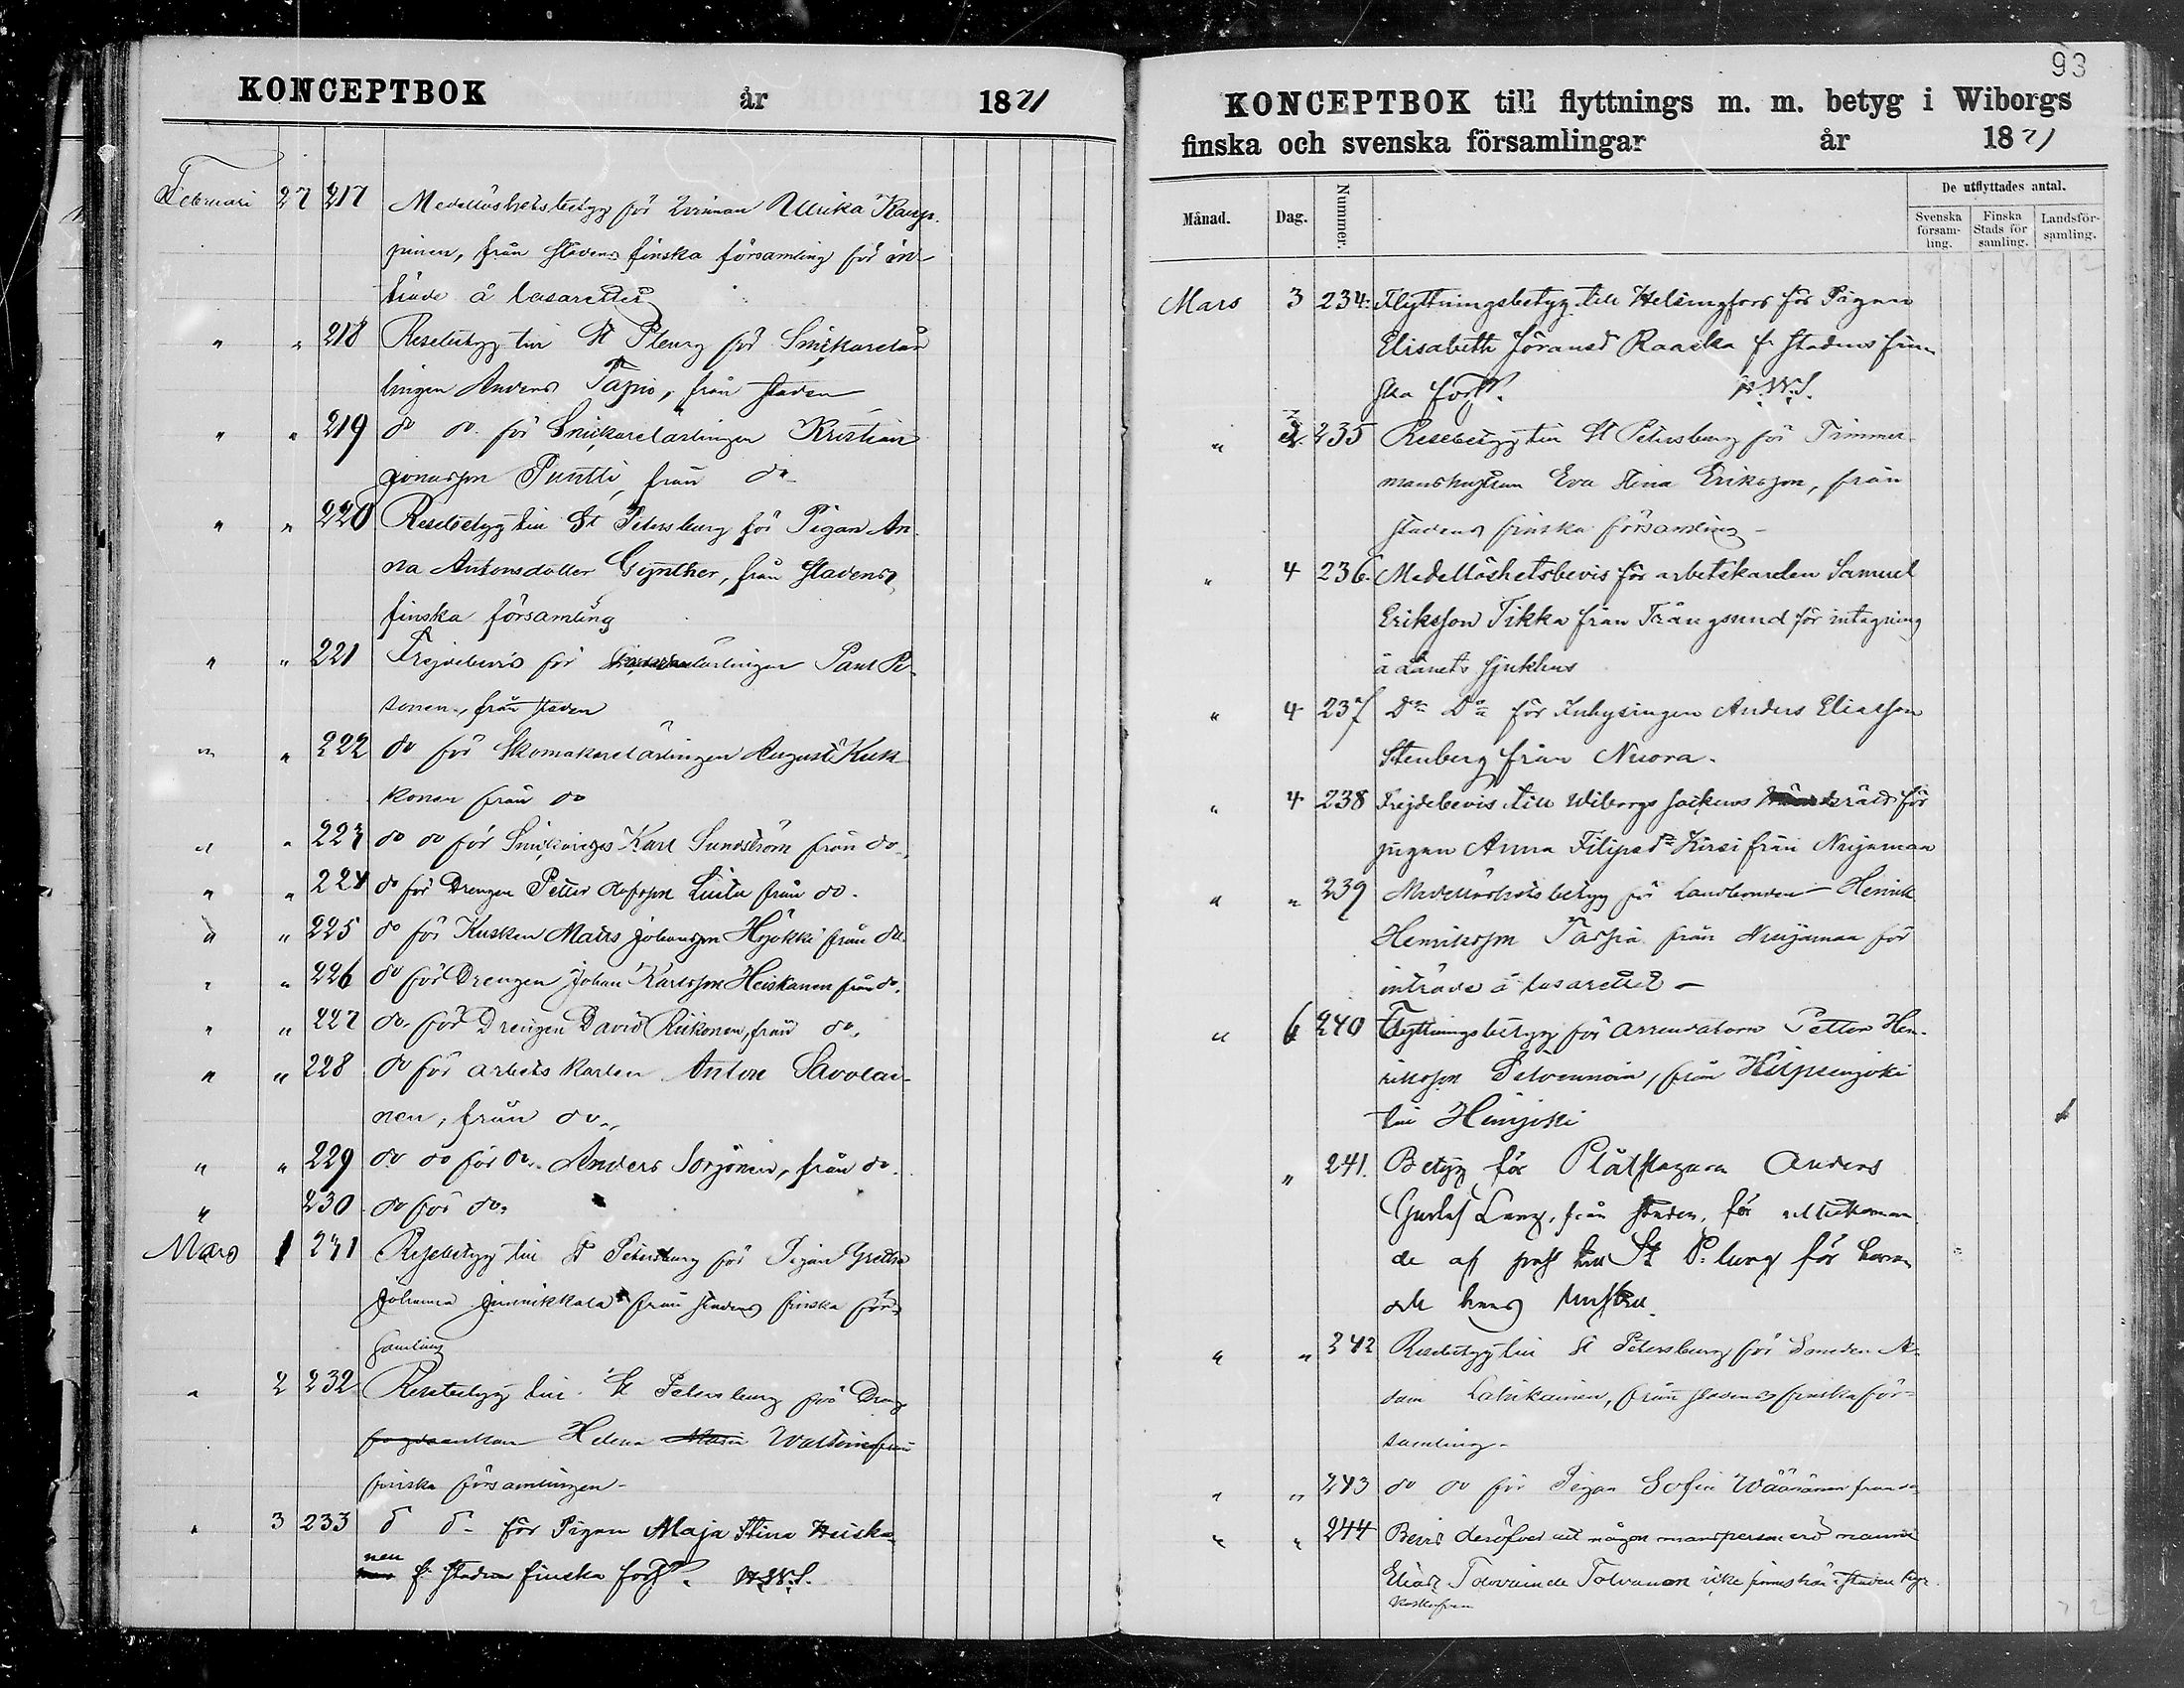 KONCEPTBOK år 1871
Februari 27 217 Medellöshetsbetyg för Qvinnan Ullrika Kaup-
pinen, från stadens finska församling för in-
träde å lasarettet
" " 218 Resebetyg till St Pburg för Snickarelär
lingen Anders Tapio, från staden
" " 219 do do för Snickarelärlingen Kristian
Jonasson Puntti, från do
" " 220 Resebetyg till St Petersburg för Pigan An-
na Antonsdotter Gynther, från stadens
finska församling
" " 221 Frejdebevis för lärlingen Paul Pe-
sonen, från staden
" " 222 do för Skomakarelärlingen August Kuk-
konen från do
" " 223 do do för Karl Sundström från do
" " 224 do för Drengen Petter Linta från do.
" " 225 do för Kusken Matts Johansson Höjökki från do.
" " 226 do för Drengen Johan Karlsson Heiskanen från do.
" " 227 do för Drengen David Riikonen, från do.
" " 228 do för arbetskarlen Anton Savolai-
nen, från do.
" " 229 do do för do. Anders Sorjonen, från do.
" 230 do för do.
Mars 1 231 Resebetyg till St Petersburg för Pigan Gretha
Johanna Jinnikkala från stadens finska för-
samling
" 2 232 Resebetyg till St Petersburg för Dreng
Helena Maria från
finska församlingen
" 3 233 d d för Pigan Maja Stina Heiska-
nen f. stadens finska förs.
93
KONCEPTBOK till flyttnings m. m. betyg i Wiborgs
finska och svenska församlingar år 1871
Månad. Dag. Nummer. De utflyttades antal.
Svenska församling. Finska Stads församling. Landsförsamling.
Mars 3 234. Flyttningsbetyg till Helsingfors för Pigan
Elisabeth Göransdr Raaska f. stadens fin-
ska förs.
" 3 235 Resebetyg till St Petersburg för Timmer-
manshustrun Eva Stina Eriksson, från
stadens finska församling
" 4 236. Medellöshetsbevis för arbetskarlen Samuel
Eriksson Tikka från Trångsund för intagning
å Länets sjukhus
" 4 237 Do Do för Inhysingen Anders Eliasson
Stenberg från Nuora.
" 4 238 Frejdebevis till Wiborgs sockens häradsrätt för
pigan Anna Filipsdr Kirsi från Nuijamaa
" " 239 Medellöshetsbetyg för Landbonden Henrik
Henriksson Tarpia från Nuijamaa för
inträde å lasarettet
" 6 240 Flyttningsbetyg för arrendatorn Petter Hen-
riksson från
till Heinjoki
" 241. Betyg för Plåtslagaren Anders
Gustaf Lang, från staden, för utbekomman-
de af pass till St P:burg för honom
och hans hustru.
" " 242 Resebetyg till St Petersburg för Smeden A-
dam Latukainen, från stadens finska för-
samling
" " 243 do do för Pigan Sofia Wäänänen från do
" " 244 Bevis deröfver att någon mansperson vid namn
Elias Tolvanen icke finnes här i staden